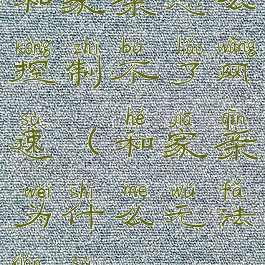 和家亲怎么
kòng zhì bù liǎo wǎng
控制不了网
sù hé jiā qīn
速(和家亲
wèi shí me wú fǎ
为什么无法